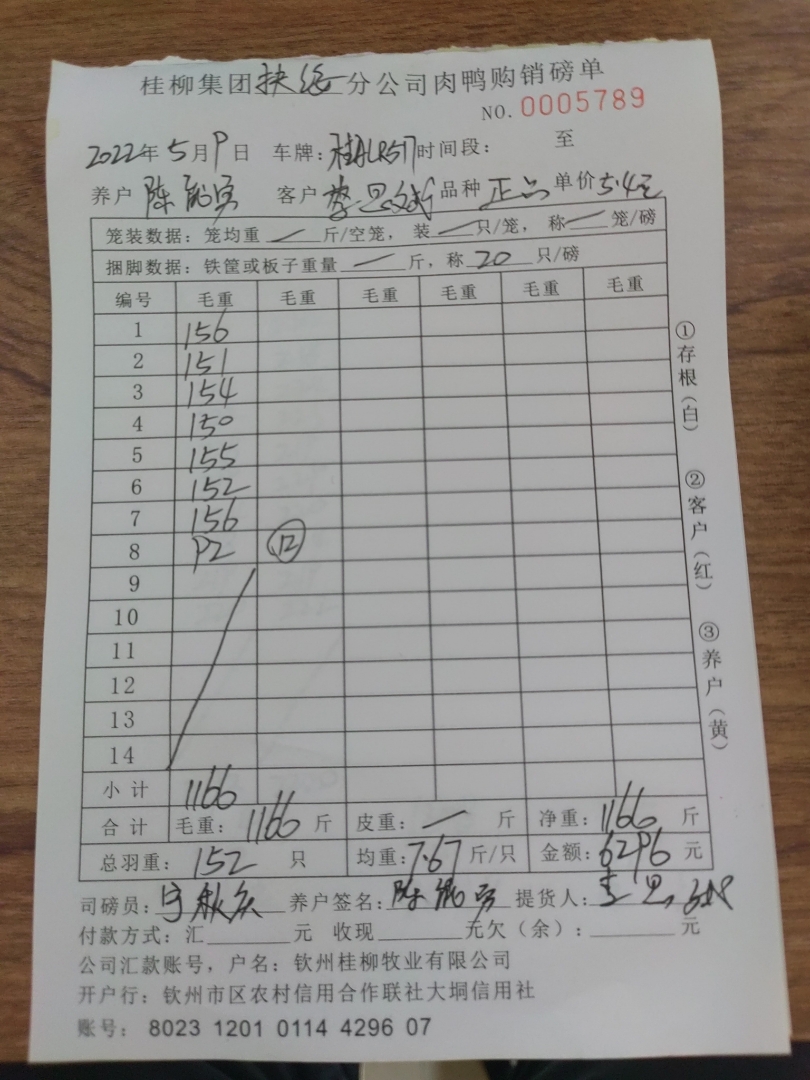 桂柳集团扶绥分公司肉鸭购销磅单
NO. 0005789
2022年5月9日 车牌: 时间段: 至
养户 陈 勇 客户 李思斌 品种 正品 单价5.4元
笼装数据：笼均重 — 斤/空笼，装 — 只/笼，称 — 笼/磅
捆脚数据：铁筐或板子重量 — 斤，称 20 只/磅
编号 毛重 毛重 毛重 毛重 毛重 毛重
1 156
2 151
3 154
4 150
5 155
6 152
7 156
8 92 ⑫
9
10
11
12
13
14
小计 1166
合计 毛重：1166 斤 皮重：— 斤 净重：1166 斤
总羽重：152 只 均重：7.67 斤/只 金额：6296 元
司磅员： 养户签名：陈 勇 提货人：李思斌
付款方式：汇 元 收现 元欠（余）： 元
公司汇款账号，户名：钦州桂柳牧业有限公司
开户行：钦州市区农村信用合作联社大垌信用社
账号： 8023 1201 0114 4296 07
①存根（白）
②客户（红）
③养户（黄）